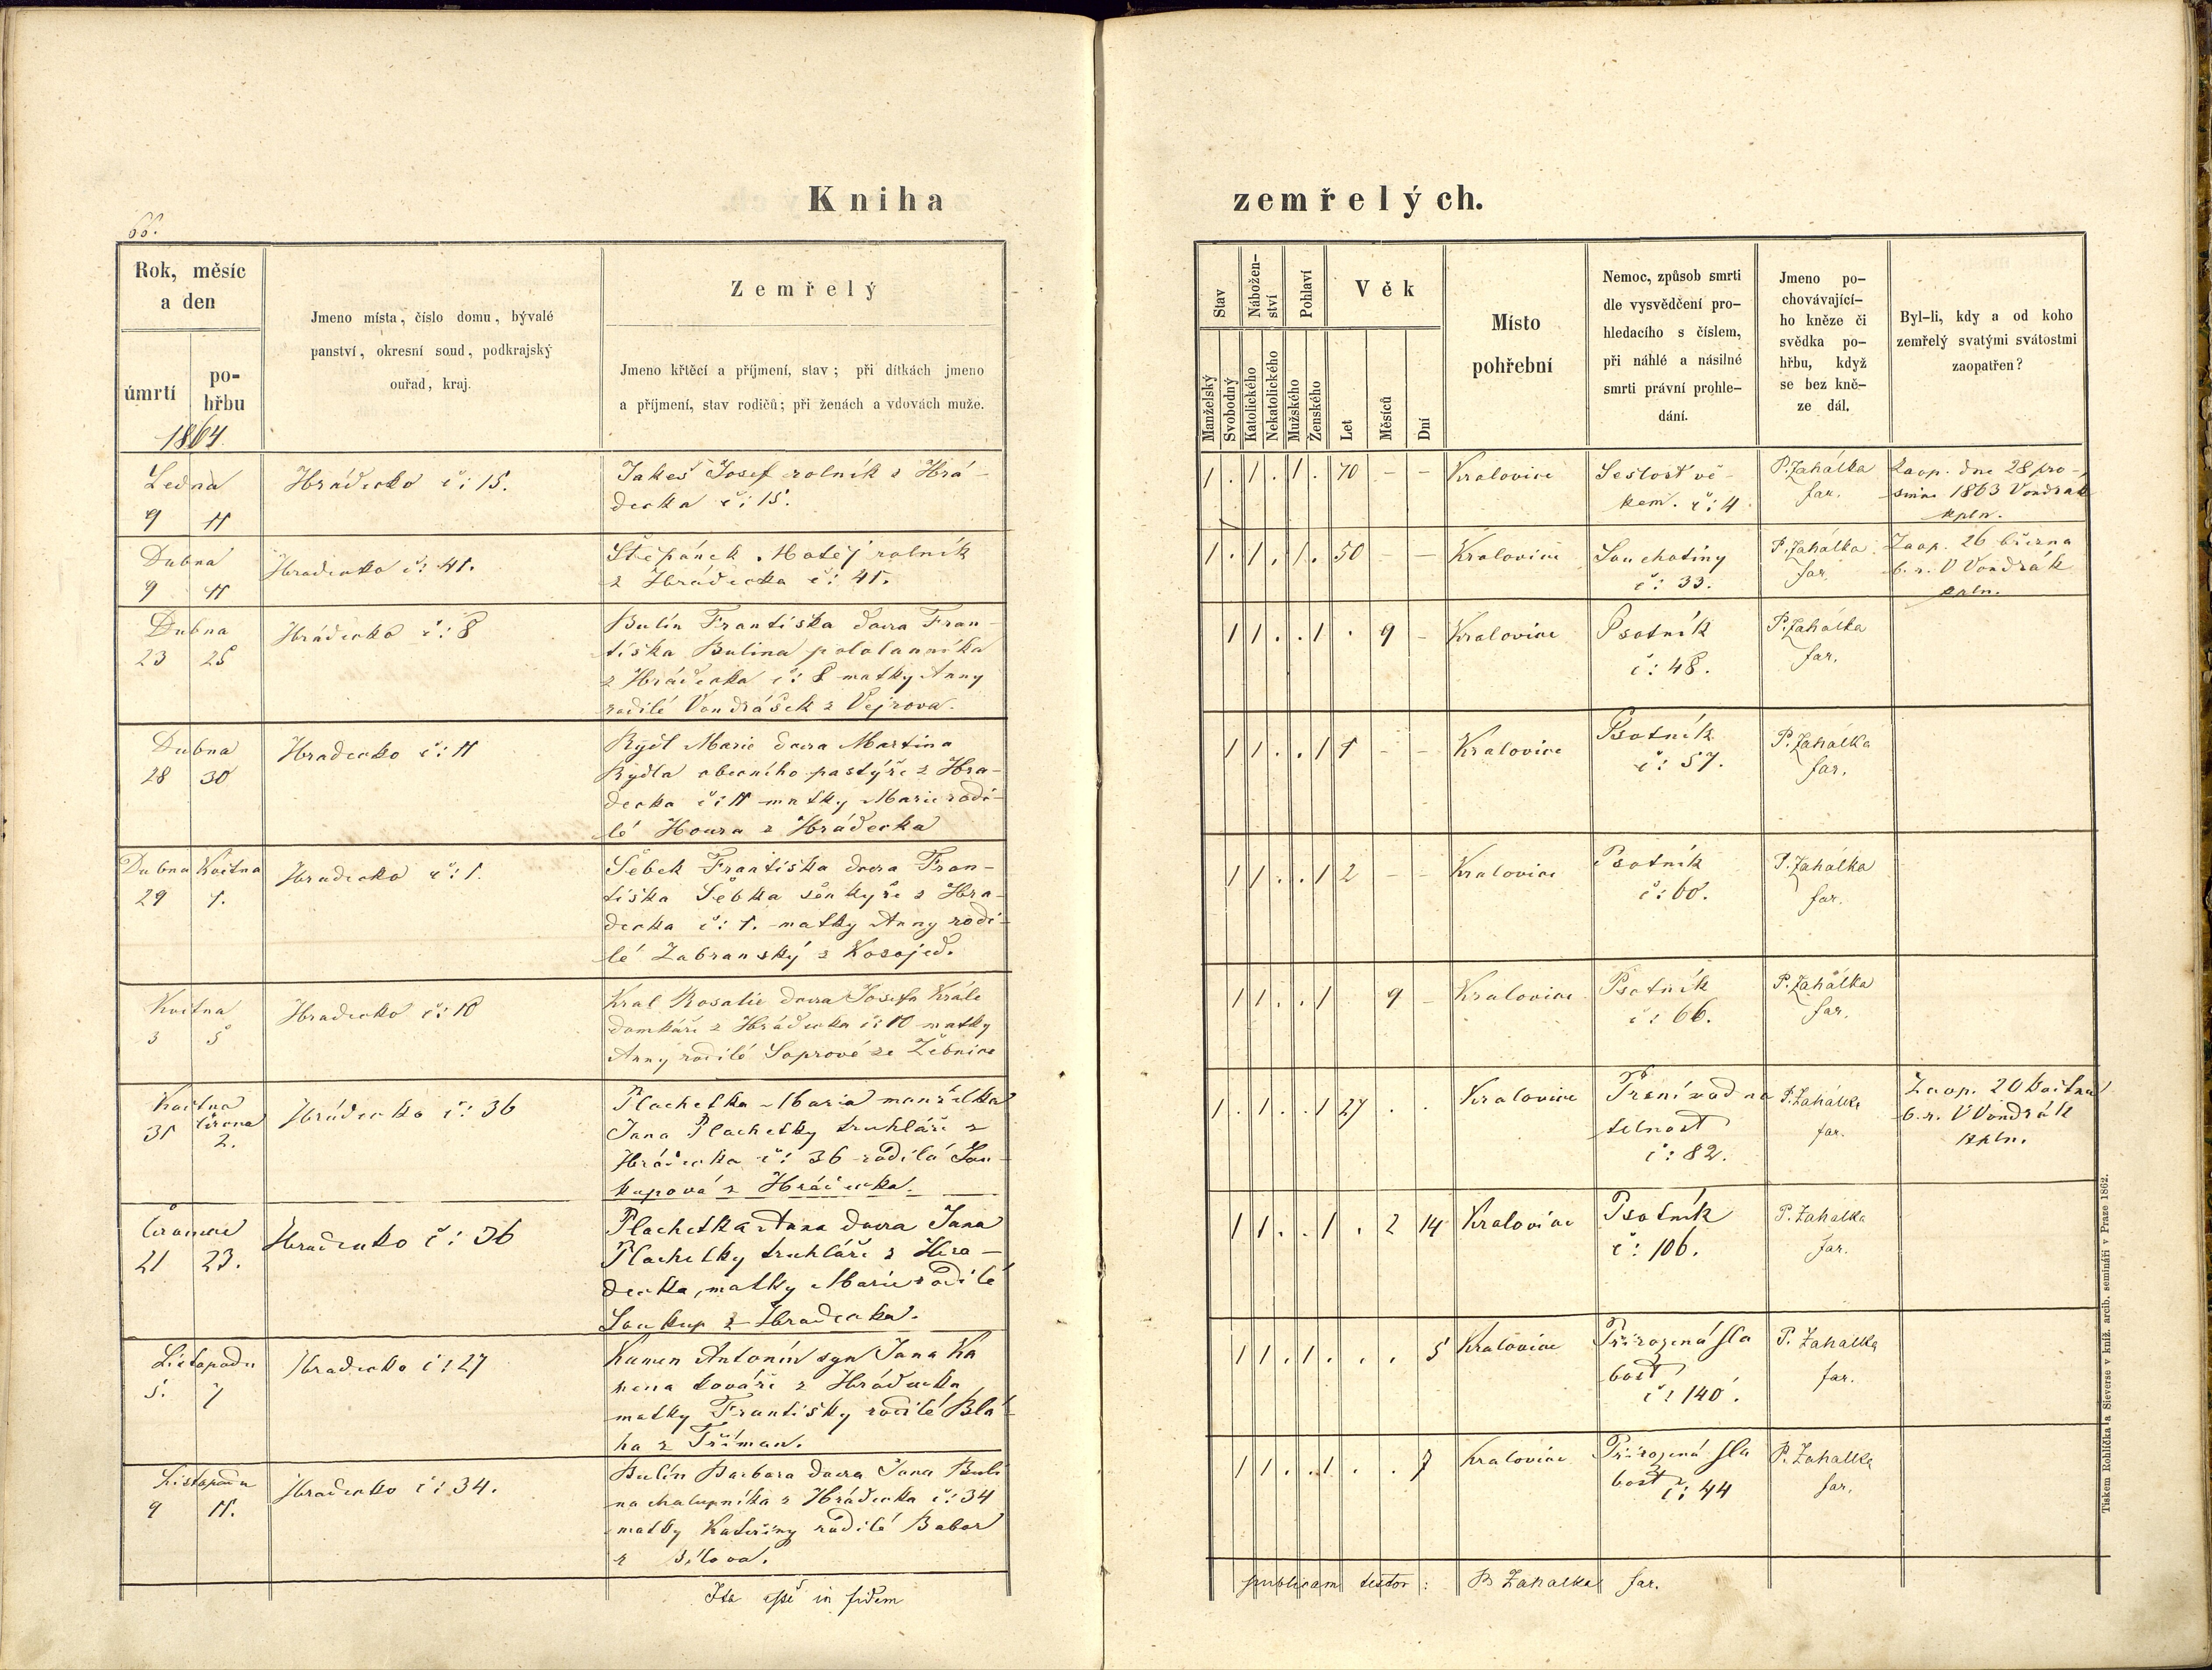 Kniha
66.
Rok, měsíc
a den
úmrtí
po-
hřbu
1864
Jmeno místa, číslo domu, bývalé
panství, okresní soud, podkrajský
ouřad, kraj.
Zemřelý
Jmeno křtěcí a příjmení, stav; při dítkách jmeno
a příjmení, stav rodičů; při ženách a vdovách muže.
Ledna
9 11
Hrádecko č: 15.
Jakeš Josef rolník z Hrá-
decka č: 15.
Dubna
9 11
Hradecko č: 41.
Štěpánek Matěj rolník
z Hrádecka č: 41.
Dubna
23 25
Hrádecko č: 8
Bulín Františka dcera Fran-
tiška Bulína pololanníka
z Hrádecka č: 8 matky Anny
rodilé Vondrášek z Vejrova.
Dubna
28 30
Hradecko č: 11
Rydl Marie dcera Martina
Rydla obecního pastýře z Hra-
decka č: 11 matky Marie rodi-
lé Houra z Hrádecka
Dubna Května
29 1.
Hradecko č: 1.
Šebek Františka dcera Fran-
tiška Šebka šenkýře z Hra-
decka č: 1. matky Anny rodi-
lé Zabranský z Kosojed.
Května
3 5
Hradecko č: 10
Kral Rosalie dcera Josefa Krále
domkáře z Hrádecka č: 10 matky
Anny rodilé Soprové ze Žebnice
Května
31 června
2.
Hrádecko č: 36
Plachetka Maria manželka
Jana Plachetky truhláře z
Hrádecka č: 36 rodilá Sou-
kupová z Hrádecka.
21 23.
Hradecko č: 36
Plachetka Anna dcera Jana
Plachetky truhláře z Hra-
decka, matky Marie rodilé
Soukup z Hradecka.
Listopadu
5. 7
Hradecko č: 27
Kamen Antonín syn Jana Ka
mena kováře z Hrádecka
matky Františky rodilé Blá-
ha z Tříman.
Listopadu
9 11.
Hradecko č: 34.
Bulín Barbara dcera Jana Buli
na chalupníka z Hrádecka č: 34
matky Kateřiny rodilé Babor
z
Ita esse in fidem
zemřelých.
Stav
Nábožen-
ství
Pohlaví
Věk
Manželský
Svobodný
Katolického
Nekatolického
Mužského
Ženského
Let
Měsíců
Dní
Místo
pohřební
Nemoc, způsob smrti
dle vysvědčení pro-
hledacího s číslem,
při náhlé a násilné
smrti právní prohle-
dání.
Jmeno po-
chovávající-
ho kněze či
svědka po-
hřbu, když
se bez kně-
ze dál.
Byl-li, kdy a od koho
zemřelý svatými svátostmi
zaopatřen?
1 . 1 . 1 . 70 - - Kralovice
Sešlost vě-
kem. č: 4
P. Zahálka
far.
Zaop. dne 28 pro-
since 1863 Vondrák
kpln.
1 . 1 . 1 . 50 - - Kralovice
Souchotiny
č: 33.
P. Zahálka
far.
Zaop. 26 března
b. r. V Vondrák
kpln.
1 1 . . 1 . 9 - Kralovice
Psotník
č: 48.
P. Zahálka
far.
1 1 . . 1 1 - - Kralovice
Psotník
č: 57.
P. Zahálka
far.
1 1 . . 1 2 - - Kralovice
Psotník
č: 60.
P. Zahálka
far.
1 1 . . 1 9 - Kralovice
Psotník
č: 66.
P. Zahálka
far.
1 . 1 . . 1 27 . . Kralovice
č: 82.
P. Zahálka
far.
Zaop. 20 Května
b. r. V Vondrák
kpln.
1 1 . . 1 . 2 14 Kralovice
Psotník
č: 106.
P. Zahalka
far.
1 1 . 1 . . . 5 Kralovice
Přirozená sla
bost
č: 140.
P. Zahalka
far.
1 1 . . 1 . . 7 Kralovice
Přirozená sla
bost č: 44
P. Zahalka
far.
publicam testor: P. Zahalka far.
Tiskem Rohlíčka a Sieverse v kníž. arcib. semináři v Praze 1862.